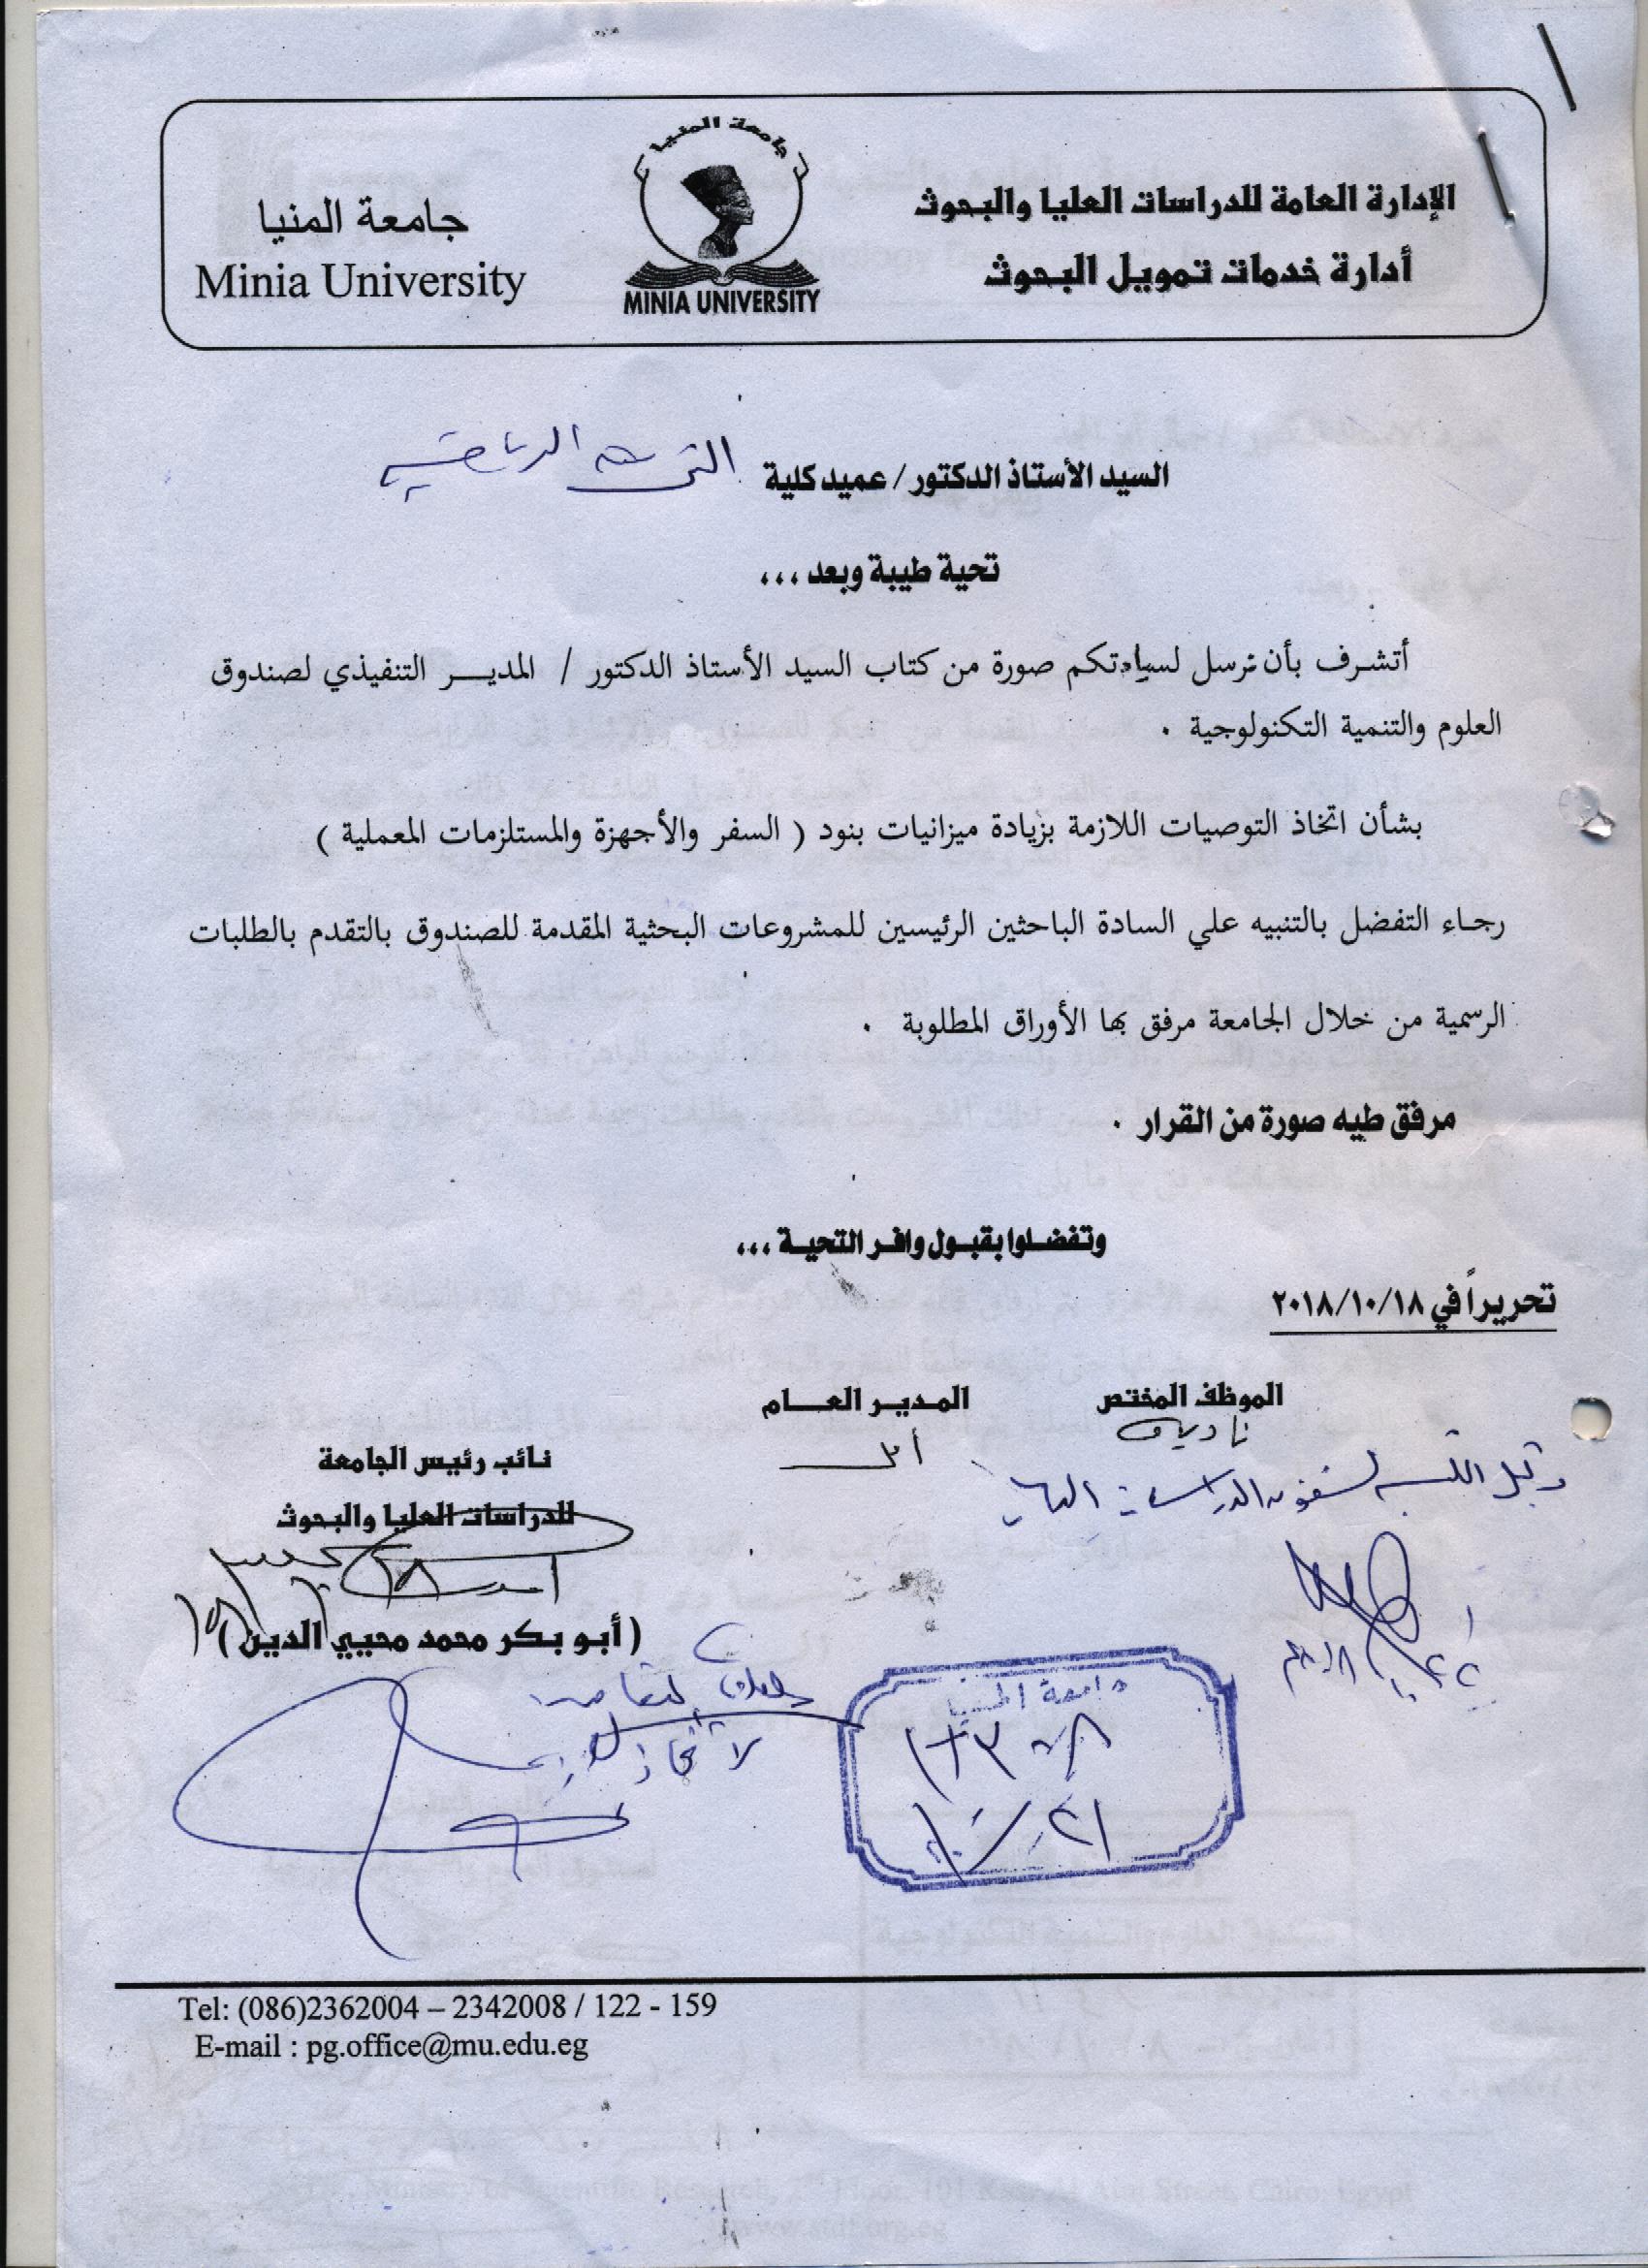 الإدارة العامة للدراسات العليا والبحوث
أدارة خدمات تمويل البحوث
جامعة المنيا
MINIA UNIVERSITY
جامعة المنيا
Minia University
السيد الأستاذ الدكتور / عميد كلية التربية الرياضية
تحية طيبة وبعد ،،،
أتشرف بأن نرسل لسيادتكم صورة من كتاب السيد الأستاذ الدكتور / المدير التنفيذي لصندوق
العلوم والتنمية التكنولوجية .
بشأن اتخاذ التوصيات اللازمة بزيادة ميزانيات بنود ( السفر والأجهزة والمستلزمات المعملية )
رجاء التفضل بالتنبيه علي السادة الباحثين الرئيسين للمشروعات البحثية المقدمة للصندوق بالتقدم بالطلبات
الرسمية من خلال الجامعة مرفق بها الأوراق المطلوبة .
مرفق طيه صورة من القرار .
وتفضلوا بقبول وافر التحية ،،،
تحريراً في ٢٠١٨/١٠/١٨
الموظف المختص
نادية
المدير العام
نائب رئيس الجامعة
للدراسات العليا والبحوث
( أبو بكر محمد محيي الدين )
جامعة المنيا
Tel: (086)2362004 – 2342008 / 122 - 159
E-mail : pg.office@mu.edu.eg